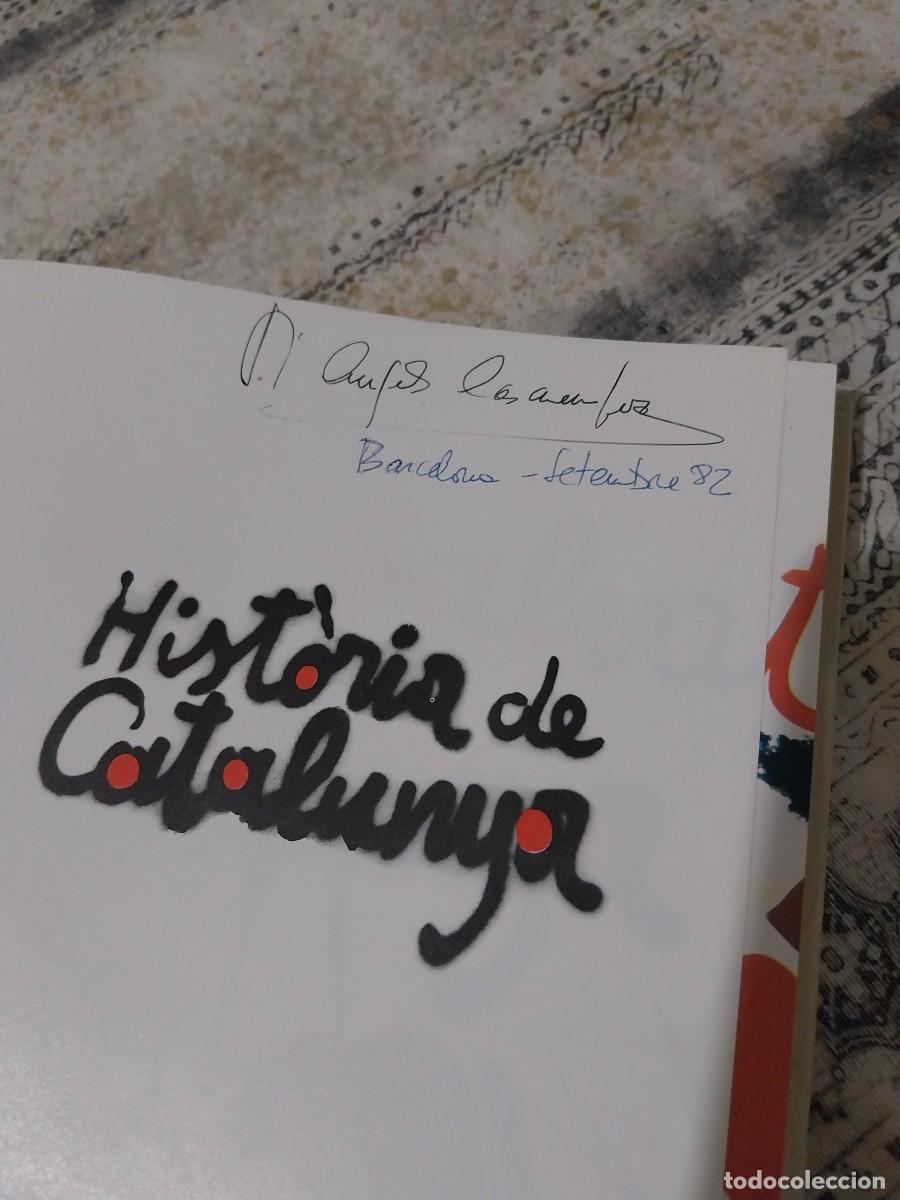 Mª Àngels
Barcelona - Setembre 82
Història de
Catalunya
todocoleccion